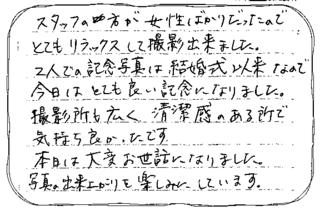 スタッフの方が女性ばかりだったので
とてもリラックスして撮影出来ました。
2人での記念写真は結婚式以来なので
今日はとても良い記念になりました。
撮影所も広く、清潔感のある所で
気持ち良かったです
本日は大変お世話になりました。
写真の出来上がりを楽しみにしています。